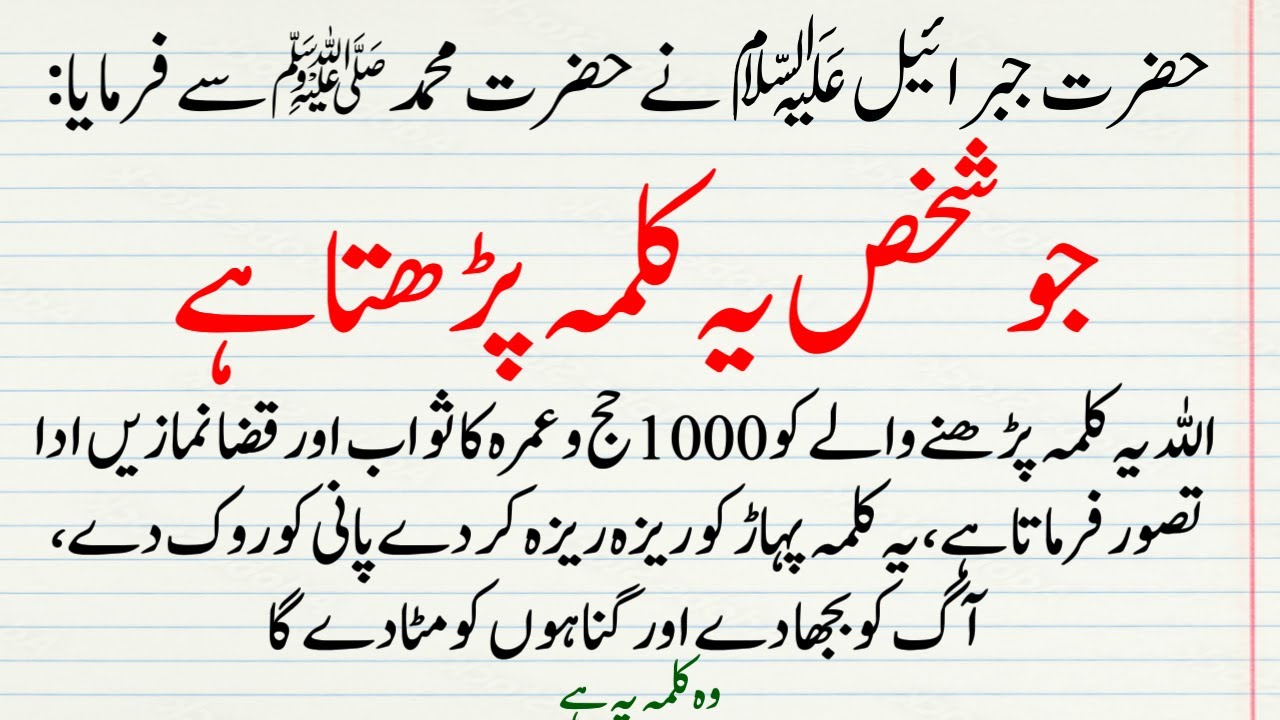 حضرت جبرائیل علیہ السلام نے حضرت محمد ﷺ سے فرمایا:
جو شخص یہ کلمہ پڑھتا ہے
اللہ یہ کلمہ پڑھنے والے کو 1000 حج و عمرہ کا ثواب اور قضا نمازیں ادا
تصور فرماتا ہے، یہ کلمہ پہاڑ کو ریزہ ریزہ کر دے پانی کو روک دے،
آگ کو بجھا دے اور گناہوں کو مٹا دے گا
وہ کلمہ یہ ہے